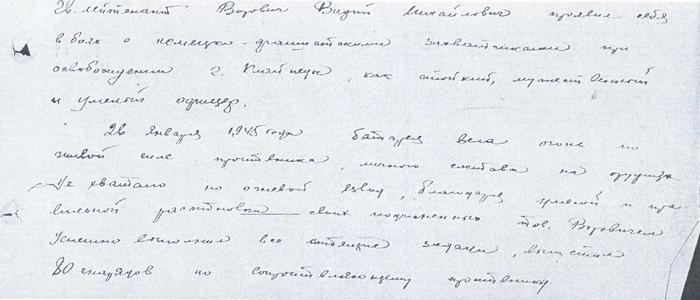 Гв. лейтенант Ворович Вадий Михайлович проявил себя
в боях с немецко-фашистскими захватчиками при
освобождении г. как стойкий, мужественный
и умелый офицер.
26 января 1945 года батарея вела огонь по
живой силе противника, личного состава на орудиях
не хватало но огневой взвод, благодаря умелой и пра
вильной расстановки своих подчиненных тов. Воровичем
успешно выполнил все стоящие задачи, выпустил
80 снарядов по сопротивляющемуся противнику